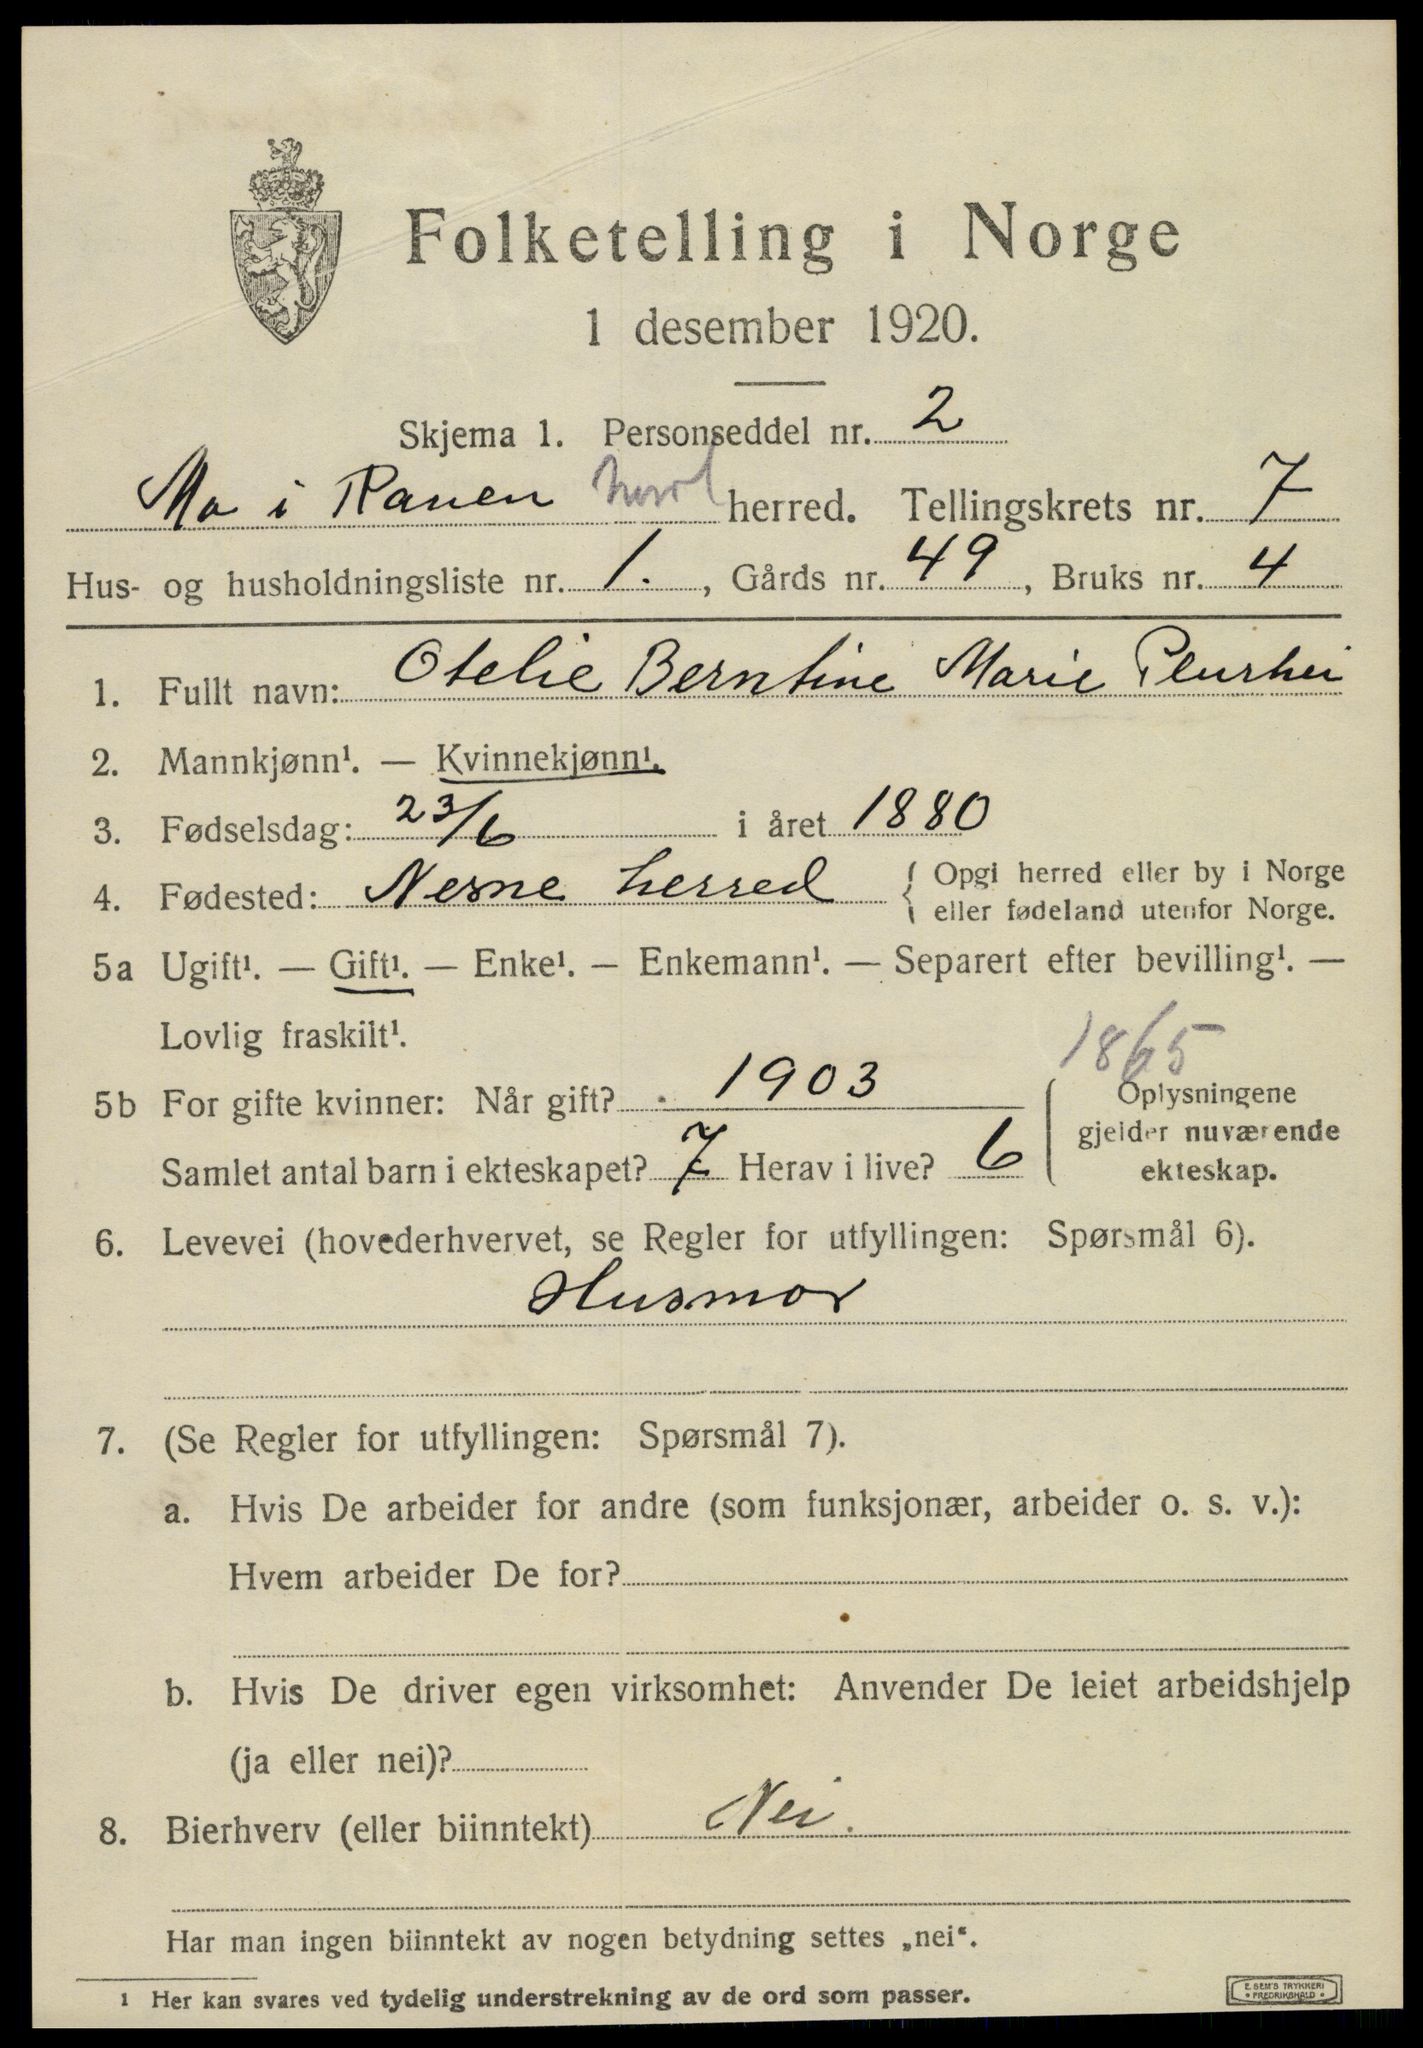 Folketelling i Norge
1 desember 1920.
Skjema 1. Personseddel nr. 2
Mo i Ranen Nord herred. Tellingskrets nr. 7
Hus- og husholdningsliste nr. 1. , Gårds nr. 49 , Bruks nr. 4
1. Fullt navn: Otelie Berntine Marie Plurhei
2. Mannkjønn¹. — Kvinnekjønn¹.
3. Fødselsdag: 23/6 i året 1880
4. Fødested: Nesne herred { Opgi herred eller by i Norge
eller fødeland utenfor Norge.
5a Ugift¹. — Gift¹. — Enke¹. — Enkemann¹. — Separert efter bevilling¹. —
Lovlig fraskilt¹.
1865
5b For gifte kvinner: Når gift? 1903 { Oplysningene
gjelder nuværende
Samlet antal barn i ekteskapet? 7 Herav i live? 6 ekteskap.
6. Levevei (hovederhvervet, se Regler for utfyllingen: Spørsmål 6).
Husmor
7. (Se Regler for utfyllingen: Spørsmål 7).
a. Hvis De arbeider for andre (som funksjonær, arbeider o. s. v.):
Hvem arbeider De for?
b. Hvis De driver egen virksomhet: Anvender De leiet arbeidshjelp
(ja eller nei)?
8. Bierhverv (eller biinntekt) Nei.
Har man ingen biinntekt av nogen betydning settes „nei“.
1 Her kan svares ved tydelig understrekning av de ord som passer.
E. SEM'S TRYKKERI
FREDRIKSHALD